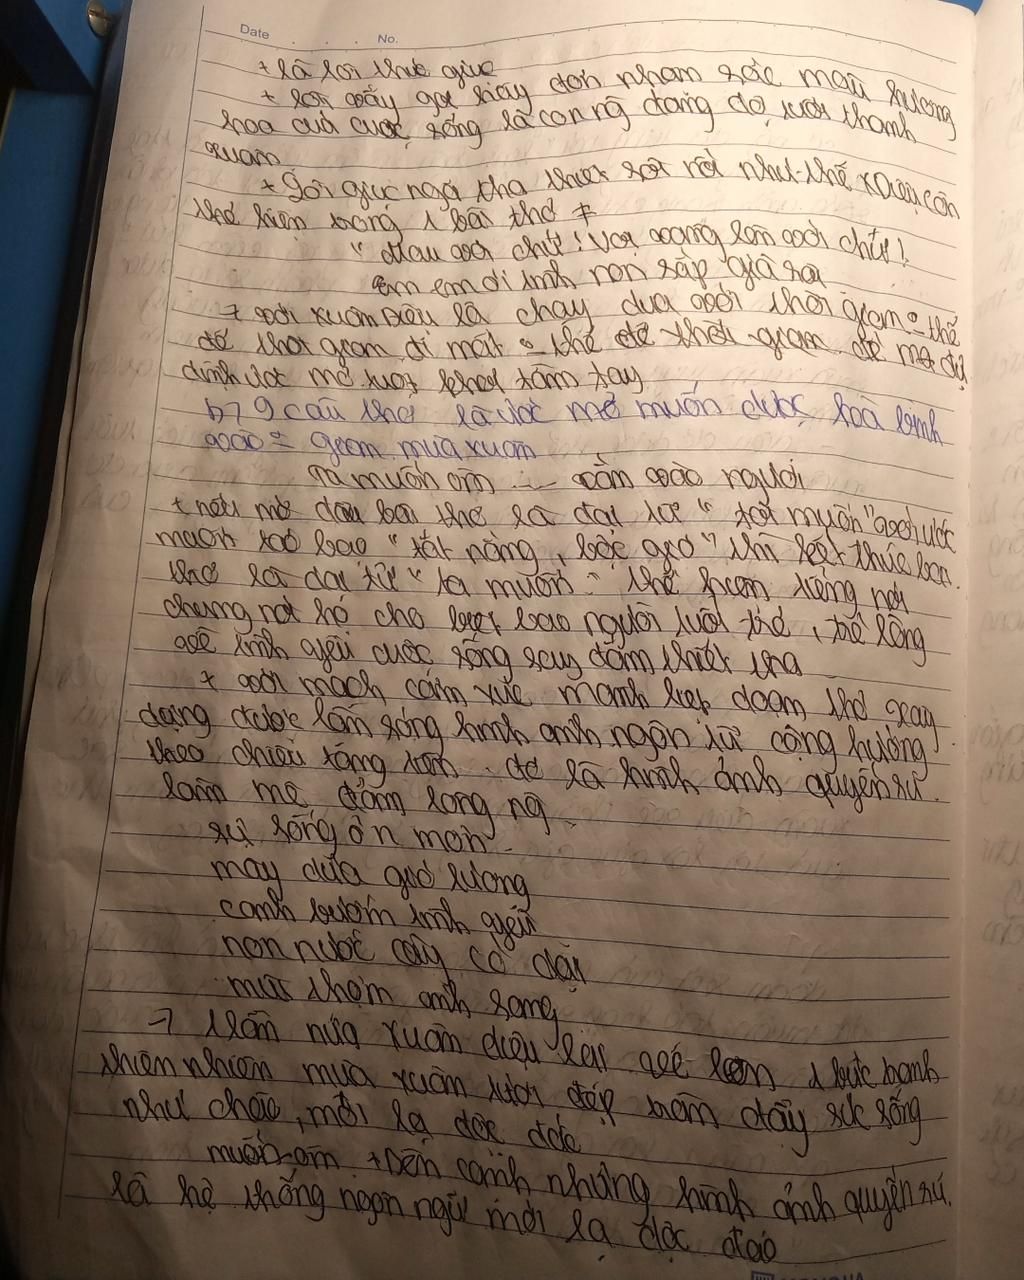 Date . . . No.
+ là lời thúc giục
+ lời vẫy gọi hãy đón nhận sắc màu hương
hoa của cuộc sống là con ng đang độ tươi thanh
xuân
+ Lời giục ngã tha thiết sôi nổi như thế Xdiệu còn
thể hiện trong 1 bài thơ ≠
" Mau với chứ! Vội vàng lên với chứ!
Em em ơi tình non sắp già rồi
→ với xuân diệu là chạy đua với thời gian = thể
để thời gian đi mất = thể để thời gian để mọi dự
định ước mơ tuột khỏi tầm tay
b, 9 câu thơ là ước mơ muốn được hoà bình
vào = gian mùa xuân
Ta muốn ôm ... cắn vào ngươi
+ nếu mở đầu bài thơ là đại từ " tôi muốn " với ước
muốn táo bạo " tắt nắng, buộc gió " thì kết thúc bài
thơ là đại từ " ta muốn " thể hiện tiếng nói
chung nói hộ cho biết bao người tuổi trẻ, trẻ lòng
về tình yêu cuộc sống say đắm thiết tha
+ với mạch cảm xúc mãnh liệt đoạn thơ xây
dựng được làn sóng hình ảnh ngôn từ cộng hưởng
theo chiều tăng tiến. đó là hình ảnh quyến rũ
làm mê đắm lòng ng
sự sống ơn mơn
mây đưa gió lượng
cánh bướm tình yêu
non nước cây cỏ dại
mùi thơm ánh sáng
→ Một lần nữa xuân diệu lại vẽ lên 1 bức tranh
thiên nhiên mùa xuân tươi đẹp tràn đầy sức sống
như chào, mới lạ độc đáo
muốn ôm + Bên cạnh những hình ảnh quyến rũ.
là hệ thống ngôn ngữ mới lạ độc đáo